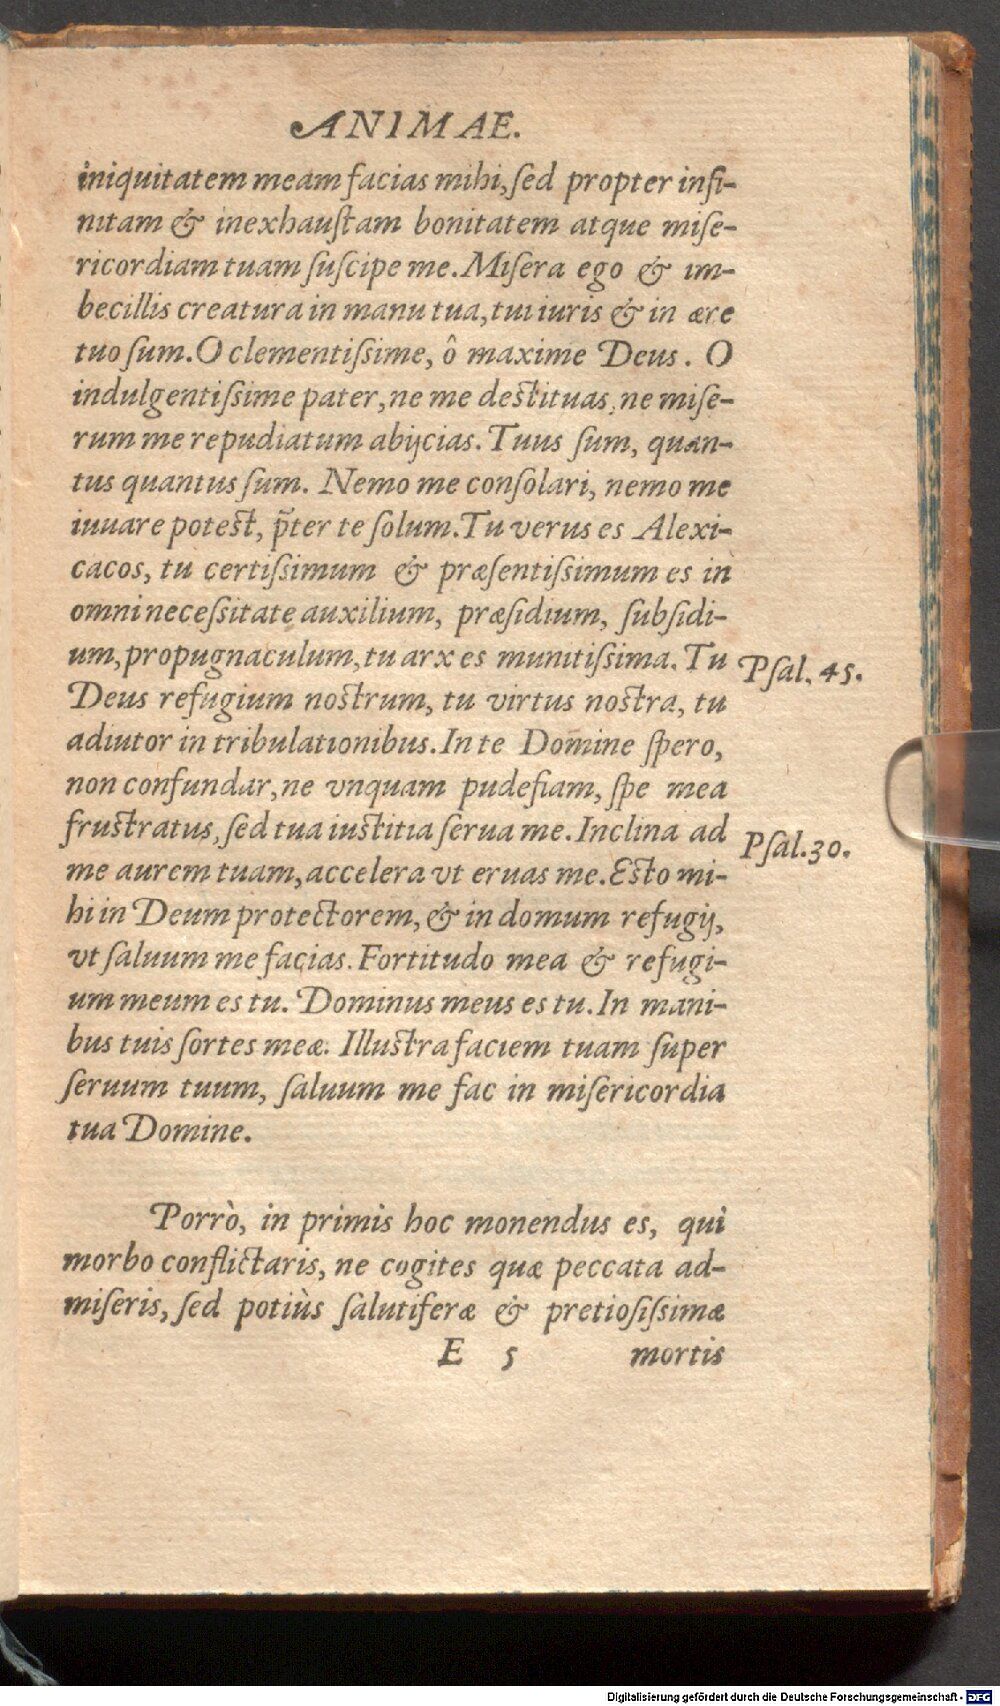 ANIMAE.
iniquitatem meam facias mihi, ſed propter infi-
nitam & inexhauſtam bonitatem atque miſe-
ricordiam tuam ſuſcipe me. Miſera ego & im-
becillis creatura in manu tua, tui iuris & in ære
tuo ſum. O clementiſſime, ô maxime Deus. O
indulgentiſſime pater, ne me deſtituas, ne miſe-
rum me repudiatum abijcias. Tuus ſum, quan-
tus quantus ſum. Nemo me conſolari, nemo me
iuuare poteſt, p̃ter te ſolum. Tu verus es Alexi-
cacos, tu certiſſimum & præſentiſſimum es in
omni neceſſitate auxilium, præſidium, ſubſidi-
um, propugnaculum, tu arx es munitiſſima. Tu
Psal. 45.
Deus refugium noſtrum, tu virtus noſtra, tu
adiutor in tribulationibus. In te Domine ſpero,
non confundar, ne vnquam pudefiam, ſpe mea
fruſtratus, ſed tua iuſtitia ſerua me. Inclina ad
Pſal. 30.
me aurem tuam, accelera vt eruas me. Eſto mi-
hi in Deum protectorem, & in domum refugij,
vt ſaluum me facias. Fortitudo mea & refugi-
um meum es tu. Dominus meus es tu. In mani-
bus tuis ſortes meæ. Illuſtra faciem tuam ſuper
ſeruum tuum, ſaluum me fac in miſericordia
tua Domine.
Porrò, in primis hoc monendus es, qui
morbo conflictaris, ne cogites quæ peccata ad-
miſeris, ſed potiùs ſalutiferæ & pretioſiſſimæ
E 5 mortis
Digitalisierung gefördert durch die Deutsche Forschungsgemeinschaft - DFG